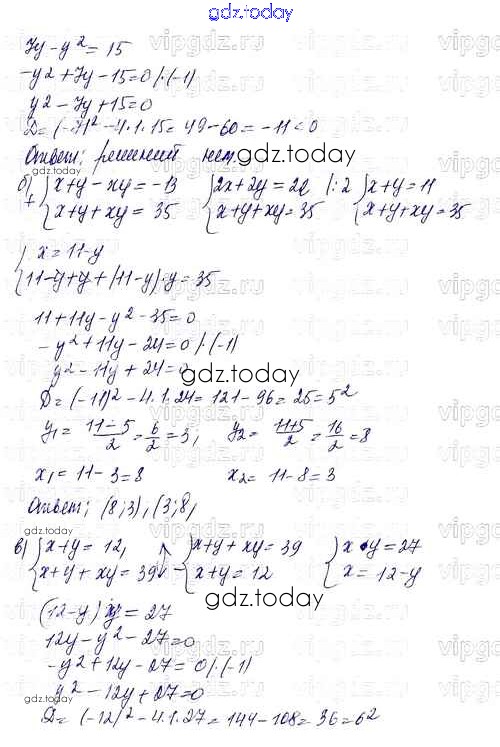 gdz.today
7y - y² = 15
-y² + 7y - 15 = 0 | · (-1)
y² - 7y + 15 = 0
D = (-7)² - 4·1·15 = 49 - 60 = -11 < 0
Ответ: решений нет. gdz.today
б) + { x+y-xy = -13 { 2x+2y = 22 | :2 { x+y = 11
x+y+xy = 35 x+y+xy = 35 x+y+xy = 35
{ x = 11-y
11-y+y+(11-y)·y = 35
11+11y-y²-35 = 0
-y²+11y-24 = 0 | · (-1)
y²-11y+24 = 0
gdz.today
D = (-11)² - 4·1·24 = 121 - 96 = 25 = 5²
y₁ = (11-5)/2 = 6/2 = 3; y₂ = (11+5)/2 = 16/2 = 8
x₁ = 11-3 = 8 x₂ = 11-8 = 3
Ответ: (8;3), (3;8)
gdz.today
в) { x+y = 12, - { x+y+xy = 39 { x·y = 27
x+y+xy = 39 x+y = 12 x = 12-y
gdz.today
(12-y)·y = 27
12y - y² - 27 = 0
-y² + 12y - 27 = 0 | · (-1)
y² - 12y + 27 = 0
gdz.today
D = (-12)² - 4·1·27 = 144 - 108 = 36 = 6²
vipgdz.ru